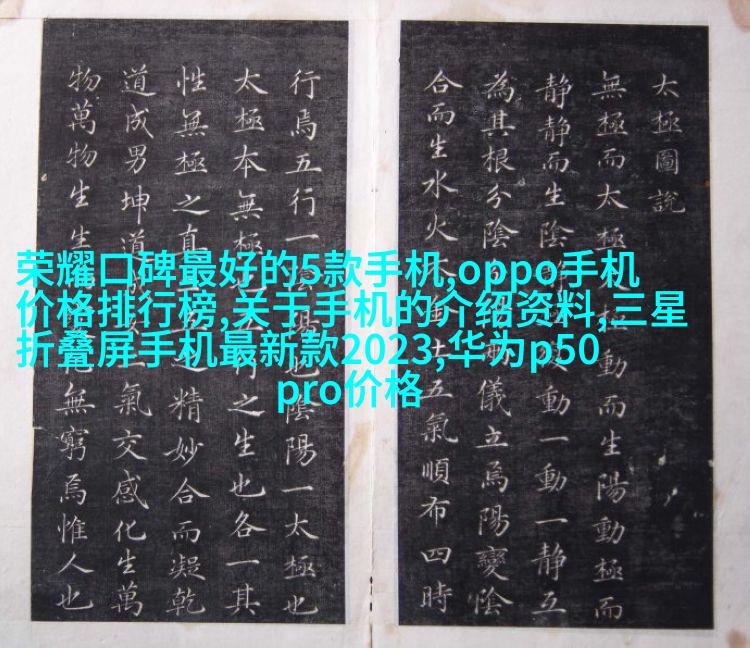 荣耀口碑最好的5款手机,oppo手机
价格排行榜,关于手机的介绍资料,三星
折叠屏手机最新款2023,华为p50
pro价格
太極圖說
無極而太極太極動而生陽動極而
静静而生陰静極復動一動一静互
為其根分陰分儀立焉陽變陰
合而生水火木金土五氣順布四時
行焉五行一陰陽也陰陽一太極也
太極本無極也五行之生也各一其
性無極之真二五之精妙合而凝乾
道成男坤道成女二氣交感化生萬
物萬物生生化無窮焉惟人也